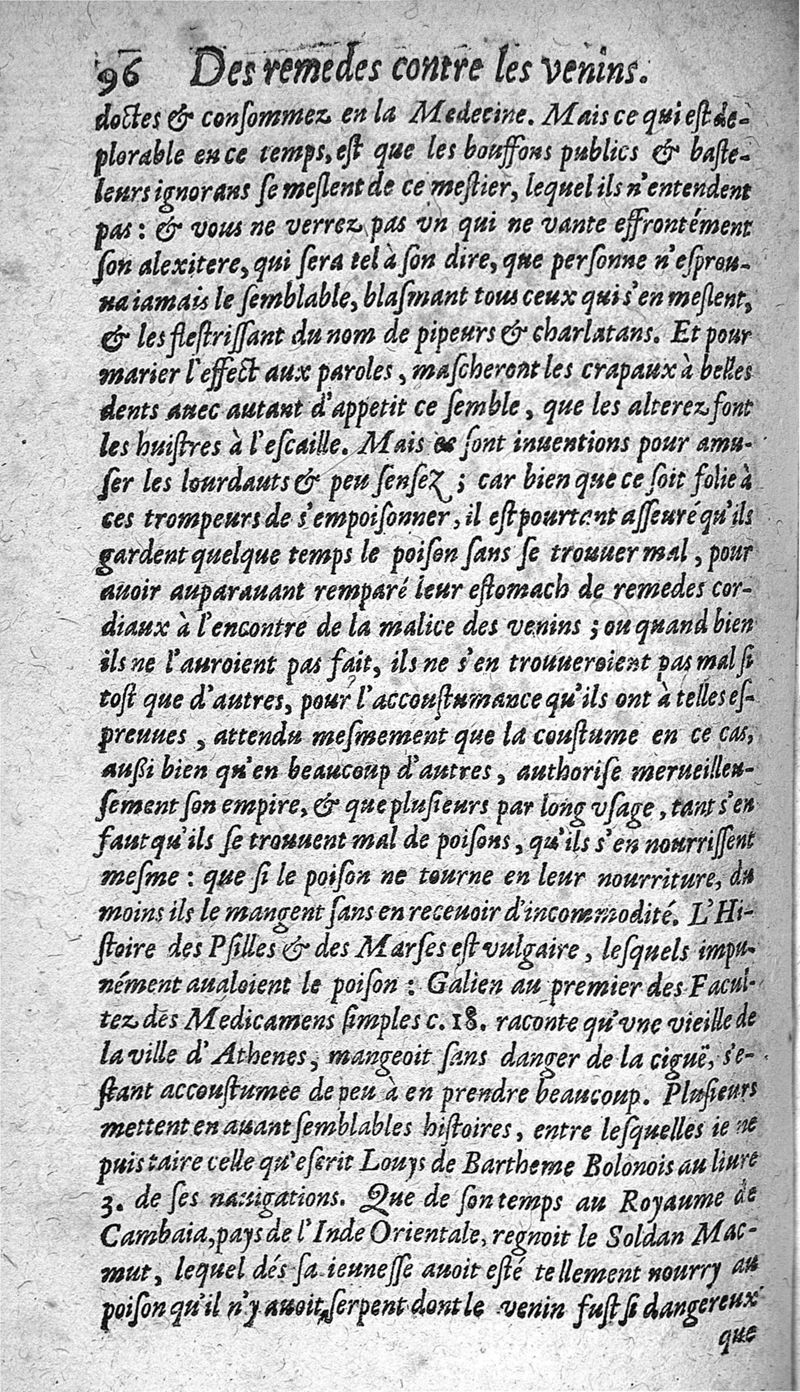 96 Des remedes contre les venins.
doctes & conſommez en la Medecine. Mais ce qui eſt de-
plorable en ce temps, eſt que les bouffons publics & baſte-
leurs ignorans ſe meſlent de ce meſtier, lequel ils n'entendent
pas : & vous ne verrez pas vn qui ne vante effrontément
ſon alexitere, qui ſera tel à ſon dire, que perſonne n'eſprou-
ua iamais le ſemblable, blaſmant tous ceux qui s'en meſlent,
& les fleſtriſſant du nom de pipeurs & charlatans. Et pour
marier l'effect aux paroles, maſcheront les crapaux à belles
dents auec autant d'appetit ce ſemble, que les alterez font
les huiſtres à l'eſcaille. Mais ce ſont inuentions pour amu-
ſer les lourdauts & peu ſenſez ; car bien que ce ſoit folie à
ces trompeurs de s'empoiſonner, il eſt pourtant aſſeuré qu'ils
gardent quelque temps le poiſon ſans ſe trouuer mal, pour
auoir auparauant remparé leur eſtomach de remedes cor-
diaux à l'encontre de la malice des venins ; ou quand bien
ils ne l'auroient pas fait, ils ne s'en trouueroient pas mal ſi
toſt que d'autres, pour l'accouſtumance qu'ils ont à telles eſ-
preuues, attendu meſmement que la couſtume en ce cas,
auſſi bien qu'en beaucoup d'autres, authoriſe merueilleu-
ſement ſon empire, & que pluſieurs par long vſage, tant s'en
faut qu'ils ſe trouuent mal de poiſons, qu'ils s'en nourriſſent
meſme : que ſi le poiſon ne tourne en leur nourriture, du
moins ils le mangent ſans en receuoir d'incommodité. L'Hi-
ſtoire des Pſilles & des Marſes eſt vulgaire, leſquels impu-
nément aualoient le poiſon : Galien au premier des Facul-
tez des Medicamens ſimples c. 18. raconte qu'vne vieille de
la ville d'Athenes, mangeoit ſans danger de la ciguë, s'e-
ſtant accouſtumee de peu à en prendre beaucoup. Pluſieurs
mettent en auant ſemblables hiſtoires, entre leſquelles ie ne
puis taire celle qu'eſcrit Louys de Bartheme Bolonois au liure
3. de ſes nauigations. Que de ſon temps au Royaume de
Cambaia, pays de l'Inde Orientale, regnoit le Soldan Mac-
mut, lequel dés ſa ieuneſſe auoit eſté tellement nourry au
poiſon qu'il n'y auoit ſerpent dont le venin fuſt ſi dangereux
que